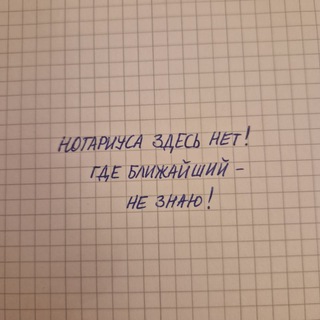 НОТАРИУСА ЗДЕСЬ НЕТ!
ГДЕ БЛИЖАЙШИЙ -
НЕ ЗНАЮ!